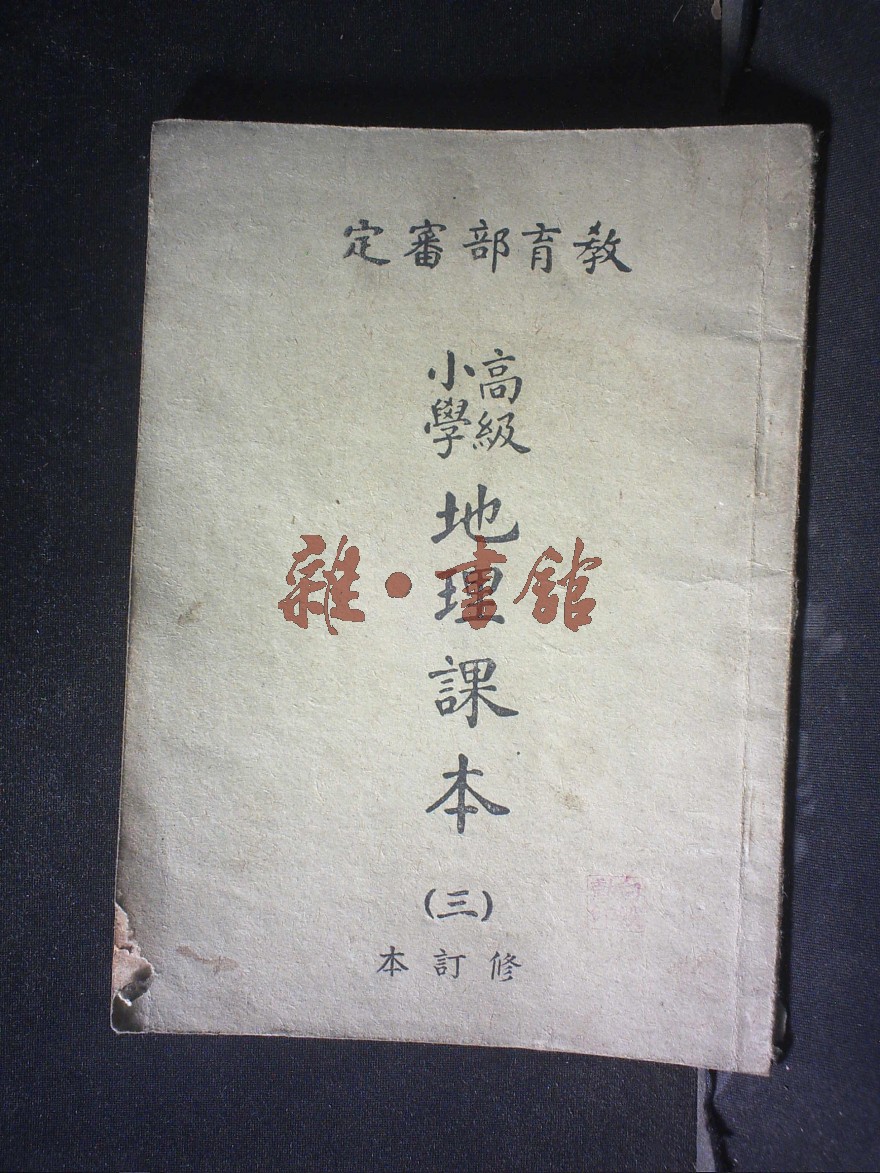 教育部審定
高級
小學
地理課本
(三)
修訂本
雜·書館